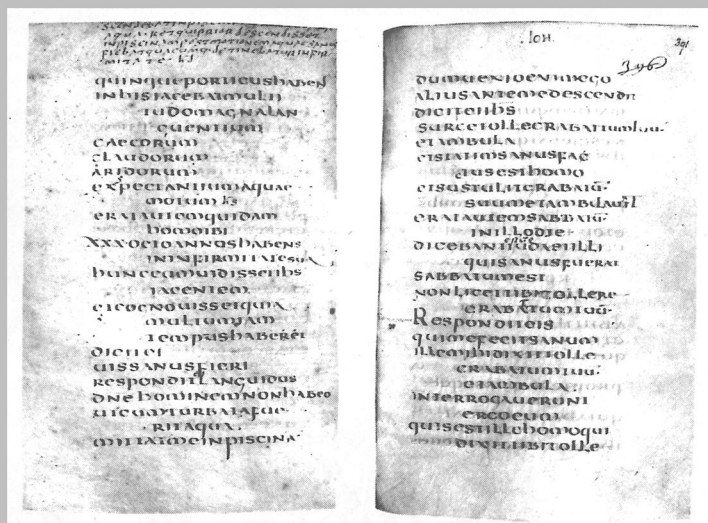 QUINQUEPORTICUSHABEN
INHISIACEBATMULTI
TUDOMAGNALAN
GUENTIUM
CAECORUM
CLAUDORUM
ARIDORUM
EXPECTANTIUMAQUAE
MOTUM hs
ERATAUTEMQUIDAM
HOMOIBI
XXXOCTOANNOSHABENS
ININFIRMITATESUA
HUNCCUMUIDISSETIHS
IACENTEM
ETCOGNOUISSETQUIA
MULTUMIAM
TEMPUSHABERET
DICITEI
UISSANUSFIERI
RESPONDITLANGUIDUS
DNEHOMINEMNONHABEO
UTCUMTURBATAFUE
RITAQUA
MITTATMEINPISCINA
IOH.
391
396
DUMUENIOENIMEGO
ALIUSANTEMEDESCENDIT
DICITEIIHS
SURGETOLLEGRABATTUMTUU
ETAMBULA
ETSTATIMSANUSFAC
TUSESTHOMO
ETSUSTULITGRABATU
SUUMETAMBULAUIT
ERATAUTEMSABBATU
INILLODIE
DICEBANTIUDAEIILLI
QUISANUSFUERAT
SABBATUMEST
NONLICETTIBITOLLERE
GRABATUMTUU
RESPONDITEIS
QUIMEFECITSANUM
ILLEMIHIDIXITTOLLE
GRABATUMTUU
ETAMBULA
INTERROGAUERUNT
ERGOEUM
QUISESTILLEHOMOQUI
DIXITTIBITOLLE